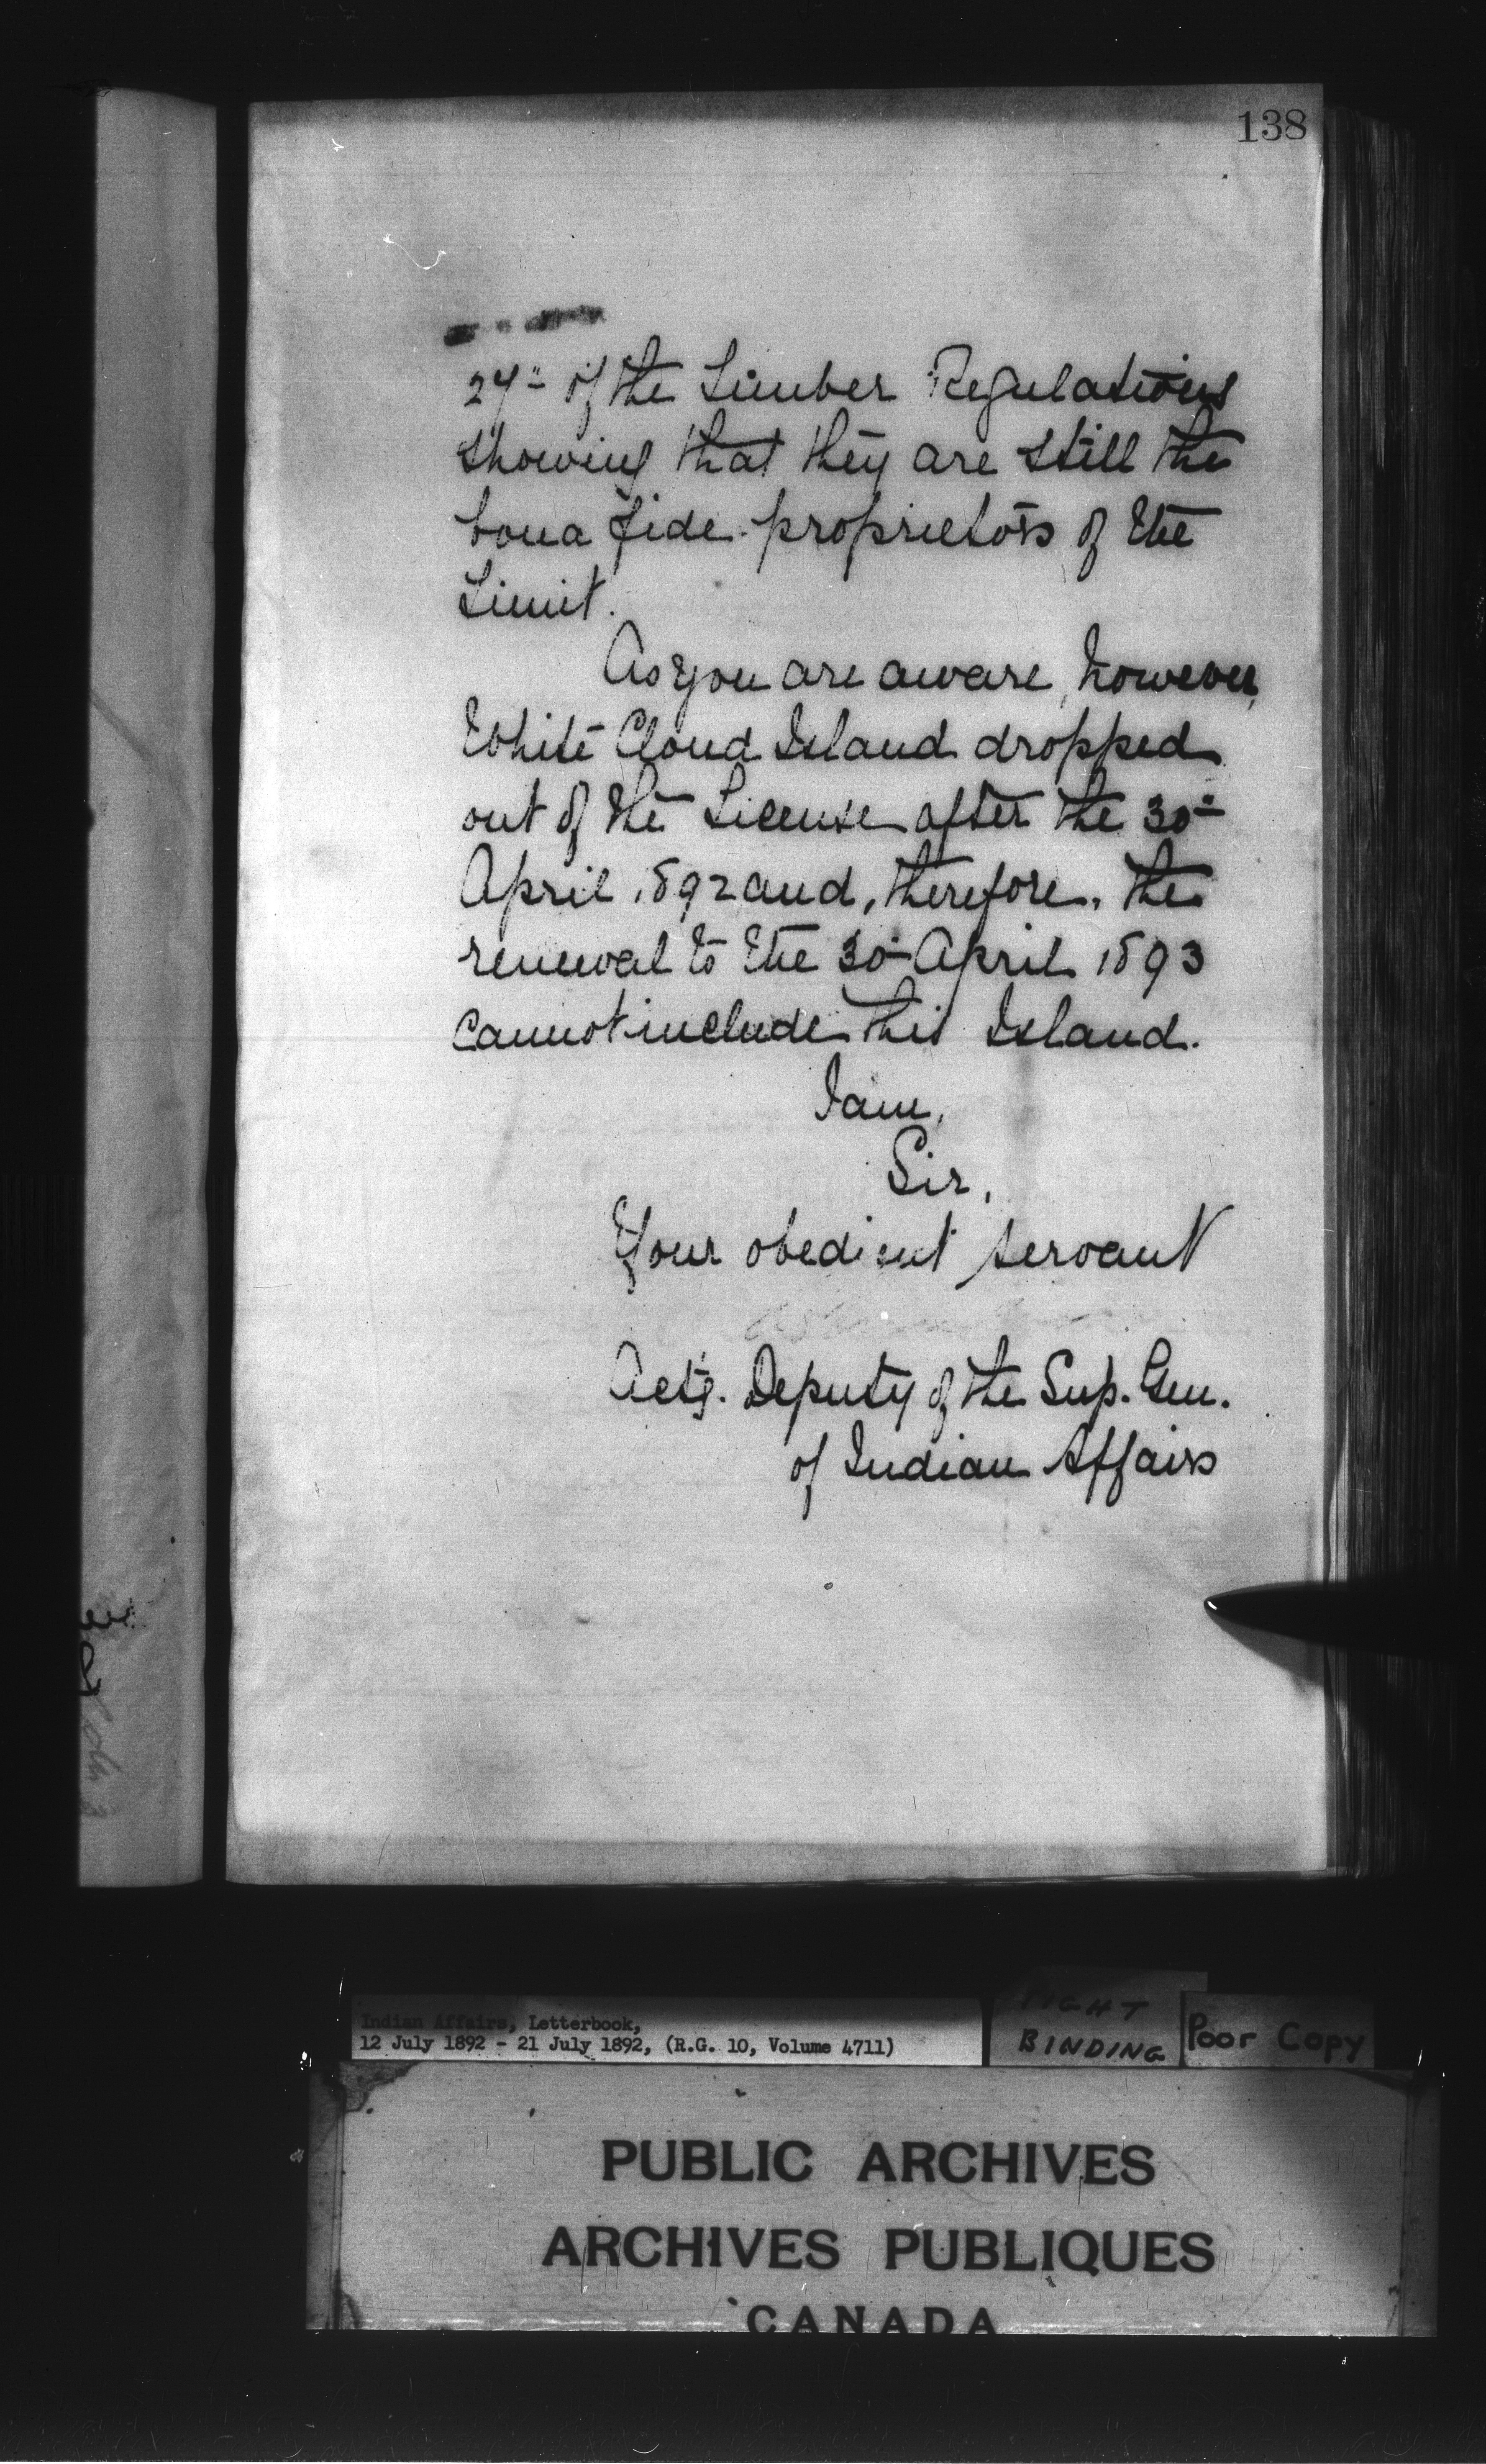 138
24th of the Timber Regulations
showing that they are still the
bona fide proprietors of the
Limit.
As you are aware, however,
White Cloud Island dropped
out of the License after the 30th
April 1892 and, therefore, the
renewal to the 30th April 1893
cannot include this Island.
I am,
Sir,
Your obedient servant
Actg. Deputy of the Sup. Gen.
of Indian Affairs
Indian Affairs, Letterbook,
12 July 1892 - 21 July 1892, (R.G. 10, Volume 4711)
TIGHT
BINDING
Poor Copy
PUBLIC ARCHIVES
ARCHIVES PUBLIQUES
CANADA